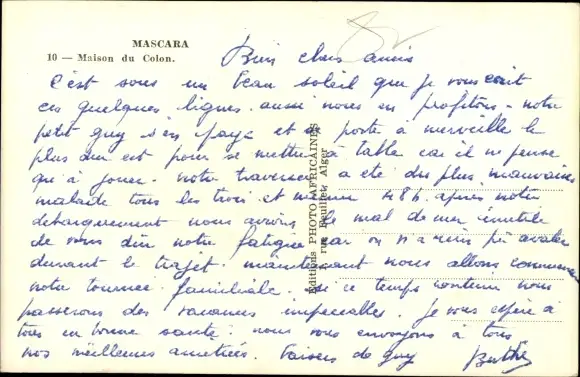 MASCARA
10 — Maison du Colon.
Bien chers amis
C'est sous un beau soleil que je vous écrit
ces quelques lignes. aussi nous en profitons - notre
petit guy s'en paye et se porte a merveille le
plus dur est pour se mettre à table car il ne pense
qu'à jouer. notre traversée a été des plus mauvaises
malade tous les trois et même 48 h. après notre
debarquement nous avions le mal de mer inutile
de vous dire notre fatigue car on n'a rien pu avaler
durant le trajet. maintenant nous allons commencer
notre tournée familiale. si ce temps continu nous
passerons des vacances impeccables. Je vous espère à
tous en bonne santé. nous vous envoyons à tous
nos meilleures amitiées. Baisers de guy Berthe
Editions PHOTO-AFRICAINES
rue Alger